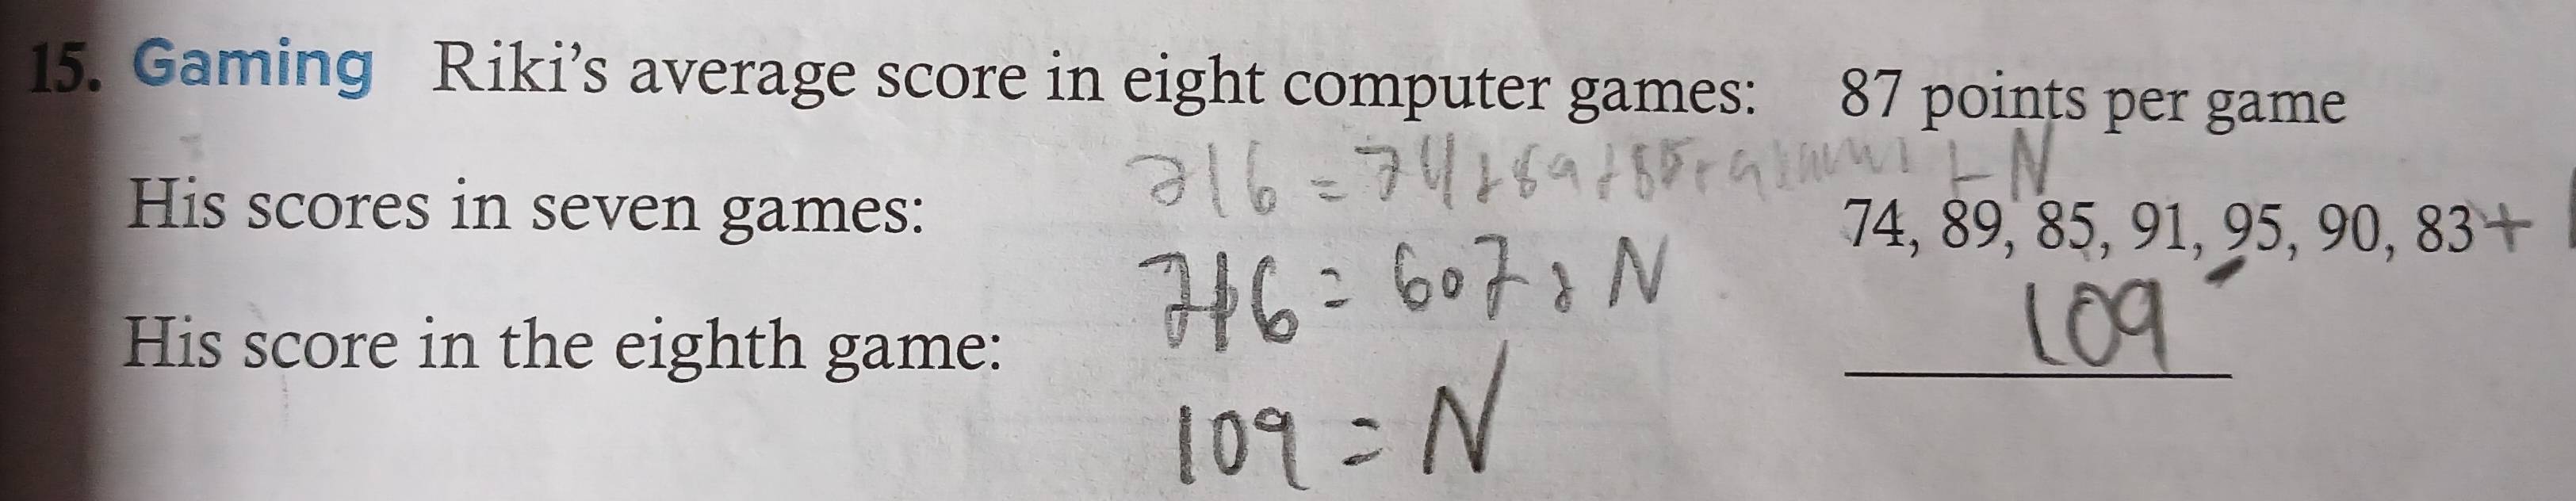 15. Gaming Riki's average score in eight computer games: 87 points per game
716 = 74+89+85+91 + N
His scores in seven games: 74, 89, 85, 91, 95, 90, 83+
716 = 607 + N
His score in the eighth game: 109
109 = N